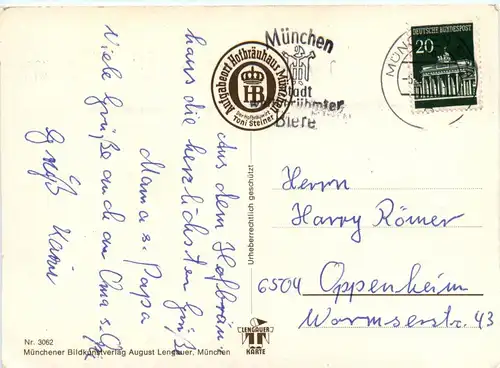 Aus dem Hofbräu-
haus die herzlichsten Grüße
Mama u. Papa
Viele Grüße auch an Oma u. Opa
Aufgabeort Hofbräuhaus München
HB
Toni Steiner
München
Stadt
weltberühmter
Biere
MÜN
DEUTSCHE BUNDESPOST
20
Urheberrechtlich geschützt
Herrn
Harry Römer
6504 Oppenheim
Wormserstr. 43
LENGAUER
KARTE
Nr. 3062
Münchener Bildkunstverlag August Lengauer, München